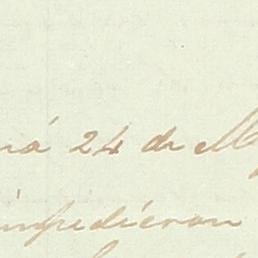 ná 24 de M
impidieron